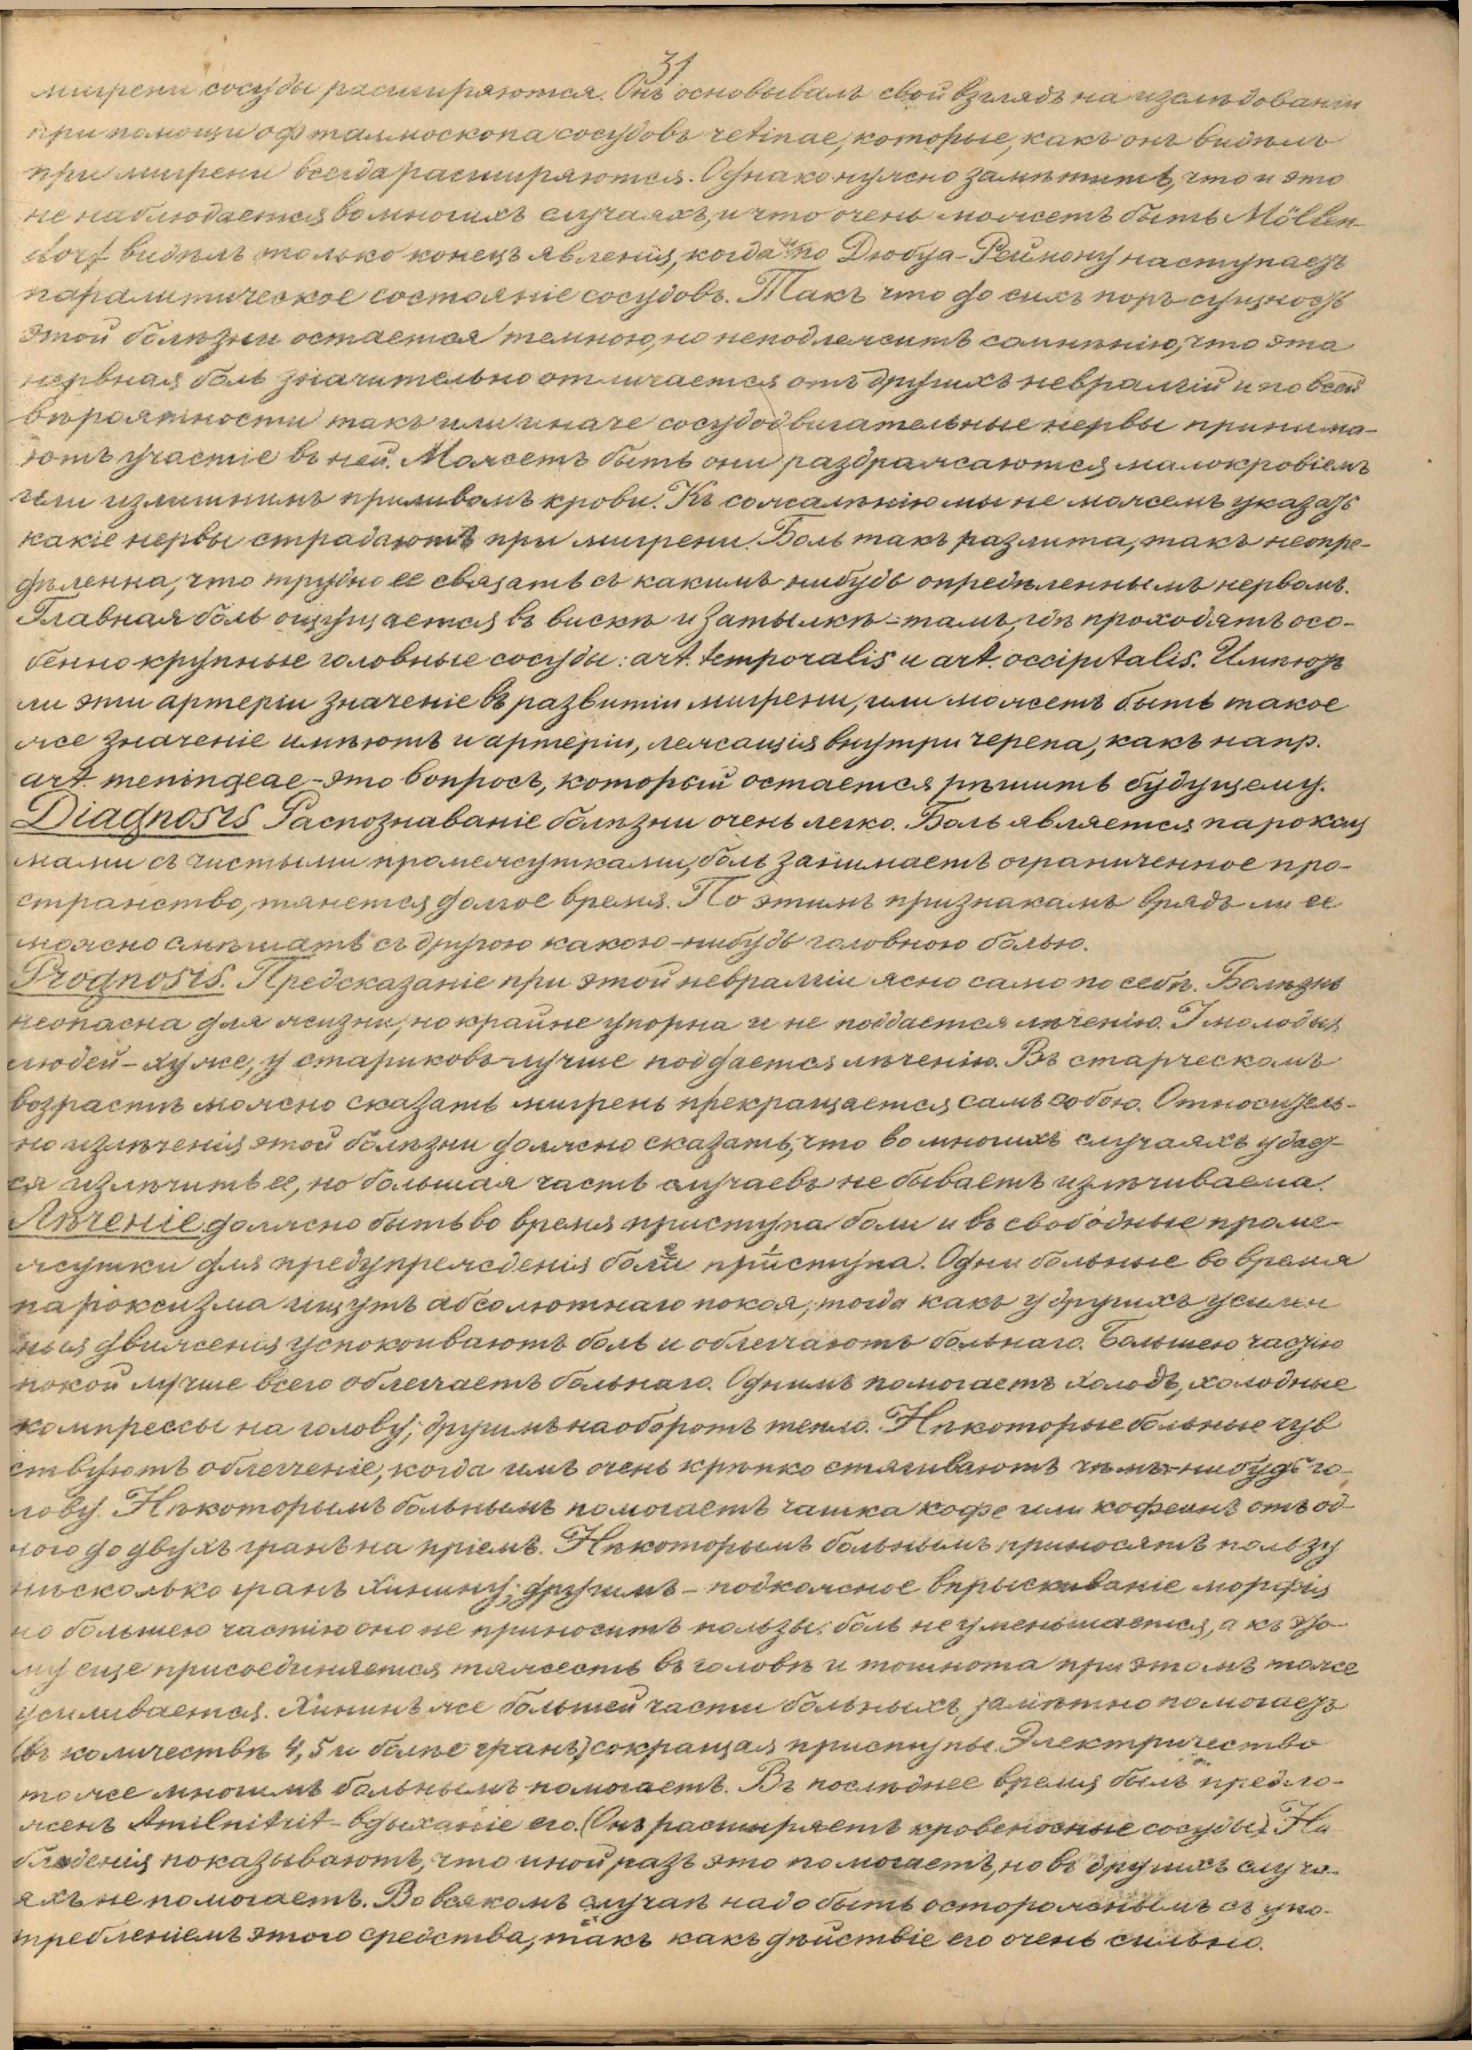 31
мигрени сосуды расширяются. Онъ основывалъ свой взглядъ на изслѣдованіи
при помощи офталмоскопа сосудовъ retinae, которые, какъ онъ видѣлъ
при мигрени всегда расширяются. Однако нужно замѣтить, что и это
не наблюдается во многихъ случаяхъ, и что очень можетъ быть Möllen-
dorf видѣлъ только конецъ явленія, когда и по Дюбуа-Реймону наступаетъ
паралитическое состояніе сосудовъ. Такъ что до сихъ поръ сущность
этой болѣзни остается темною, но неподлежитъ сомнѣнію, что эта
нервная боль значительно отличается отъ другихъ невралгій и по всей
вѣроятности такъ или иначе сосудодвигательные нервы принима-
ютъ участіе въ ней. Можетъ быть они раздражаются малокровіемъ
или излишнимъ приливомъ крови. Къ сожалѣнію мы не можемъ указать
какіе нервы страдаютъ при мигрени. Боль такъ разлита, такъ неопре-
дѣленна, что трудно ее связать съ какимъ нибудь опредѣленнымъ нервомъ.
Главная боль ощущается въ вискѣ и затылкѣ - тамъ, гдѣ проходятъ осо-
бенно крупные головные сосуды: art. temporalis и art. occipitalis. Имѣютъ
ли эти артеріи значеніе въ развитіи мигрени, или можетъ быть такое
же значеніе имѣютъ и артеріи, лежащія внутри черепа, какъ напр.
art. meningeae - это вопросъ, который остается рѣшить будущему.
Diagnosis Распознаваніе болѣзни очень легко. Боль является пароксиз
мами съ чистыми промежутками, боль занимаетъ ограниченное про-
странство, тянется долгое время. По этимъ признакамъ врядъ ли ее
можно смѣшать съ другою какою-нибудь головною болью.
Prognosis. Предсказаніе при этой невралгіи ясно само по себѣ. Болѣзнь
неопасна для жизни, но крайне упорна и не поддается лѣченію. У молодыхъ
людей - хуже, у стариковъ лучше поддается лѣченію. Въ старческомъ
возрастѣ можно сказать мигрень прекращается самъ собою. Относитель-
но излѣченія этой болѣзни должно сказать, что во многихъ случаяхъ удает-
ся излѣчить ее, но большая часть случаевъ не бываетъ излѣчиваема.
Лѣченіе должно быть во время приступа боли и въ свободные проме-
жутки для предупрежденія боли 2 приступа 1. Одни больные во время
пароксизма ищутъ абсолютнаго покоя, тогда какъ у другихъ усилен
ныя движенія успокоиваютъ боль и облегчаютъ больнаго. Большею частію
покой лучше всего облегчаетъ больнаго. Однимъ помогаетъ холодъ, холодные
компрессы на голову, другимъ наоборотъ тепло. Нѣкоторые больные чув
ствуютъ облегченіе, когда имъ очень крѣпко стягиваютъ чѣмъ-нибудь го-
лову. Нѣкоторымъ больнымъ помогаетъ чашка кофе или кофеинъ отъ од-
ного до двухъ гранъ на пріемъ. Нѣкоторымъ больнымъ приносятъ пользу
нѣсколько гранъ хинину; другимъ - подкожное впрыскиваніе морфія
но большею частію оно не приноситъ пользы: боль не уменьшается, а къ это-
му еще присоединяется тяжесть въ головѣ и тошнота при этомъ тоже
усиливается. Хининъ же большей части больныхъ замѣтно помогаетъ
(въ количествѣ 4, 5 и болѣе гранъ) сокращая приступы. Электричество
тоже многимъ больнымъ помогаетъ. Въ послѣднее время былъ предло-
женъ Amilnitrit - вдыханіе его. (Онъ расширяетъ кровеносные сосуды). На
блюденія показываютъ, что иной разъ это помогаетъ, но въ другихъ случа-
яхъ не помогаетъ. Во всякомъ случаѣ надо быть осторожнымъ съ упо-
требленіемъ этого средства, такъ какъ дѣйствіе его очень сильно.